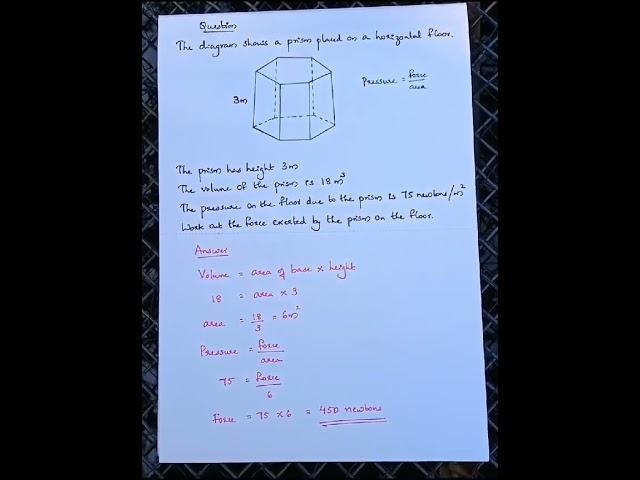 Question
The diagram shows a prism placed on a horizontal floor.
Pressure = force/area
3m
The prism has height 3m
The volume of the prism is 18m³
The pressure on the floor due to the prism is 75 newtons/m²
Work out the force exerted by the prism on the floor.
Answer
Volume = area of base × height
18 = area × 3
area = 18/3 = 6m²
Pressure = force/area
75 = force/6
Force = 75 × 6 = 450 newtons